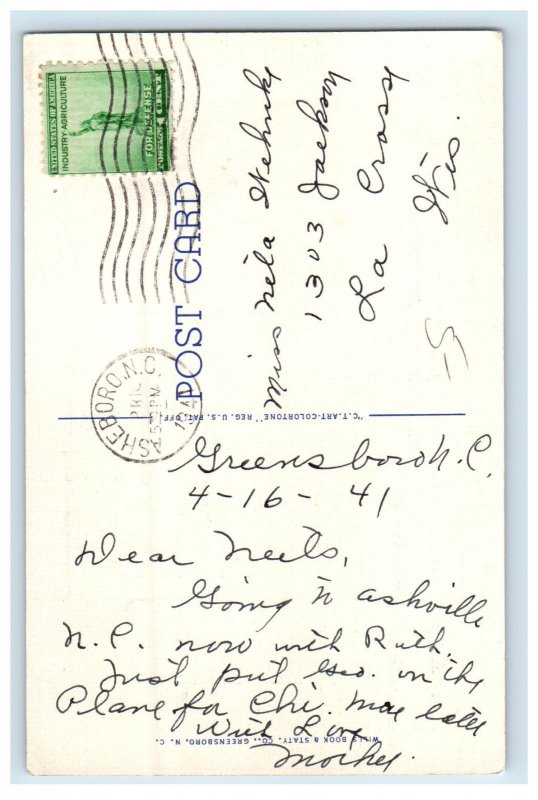 UNITED STATES OF AMERICA
INDUSTRY AGRICULTURE
FOR DEFENSE
POSTAGE 1 CENT
POST CARD
Miss Nela Wehnke
1303 Jackson
La Cross
Wis.
ASHEBORO, N.C.
PM
1941
"C.T. ART-COLORTONE" REG. U.S. PAT. OFF.
Greensboro N.C.
4-16-41
Dear Neets,
Going to ashville
N.C. now with Ruth.
Just put Geo. on the
Plane for Chi. More later
With Love
Mother.
WILLS BOOK & STATY. CO., GREENSBORO, N. C.